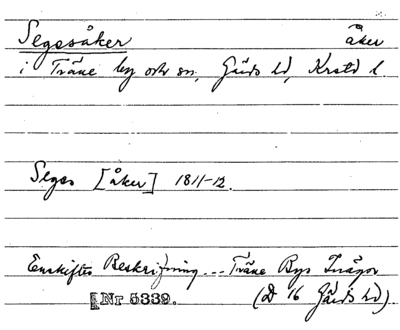 Segesåker åker
i Träne by och sn, Gärds hd, Krstd l.
Seges [åker] 1811-12.
Enskiftes Beskrifning ... Träne Bys Inägor
[Nr 5339. (D 16 Gärds hd)